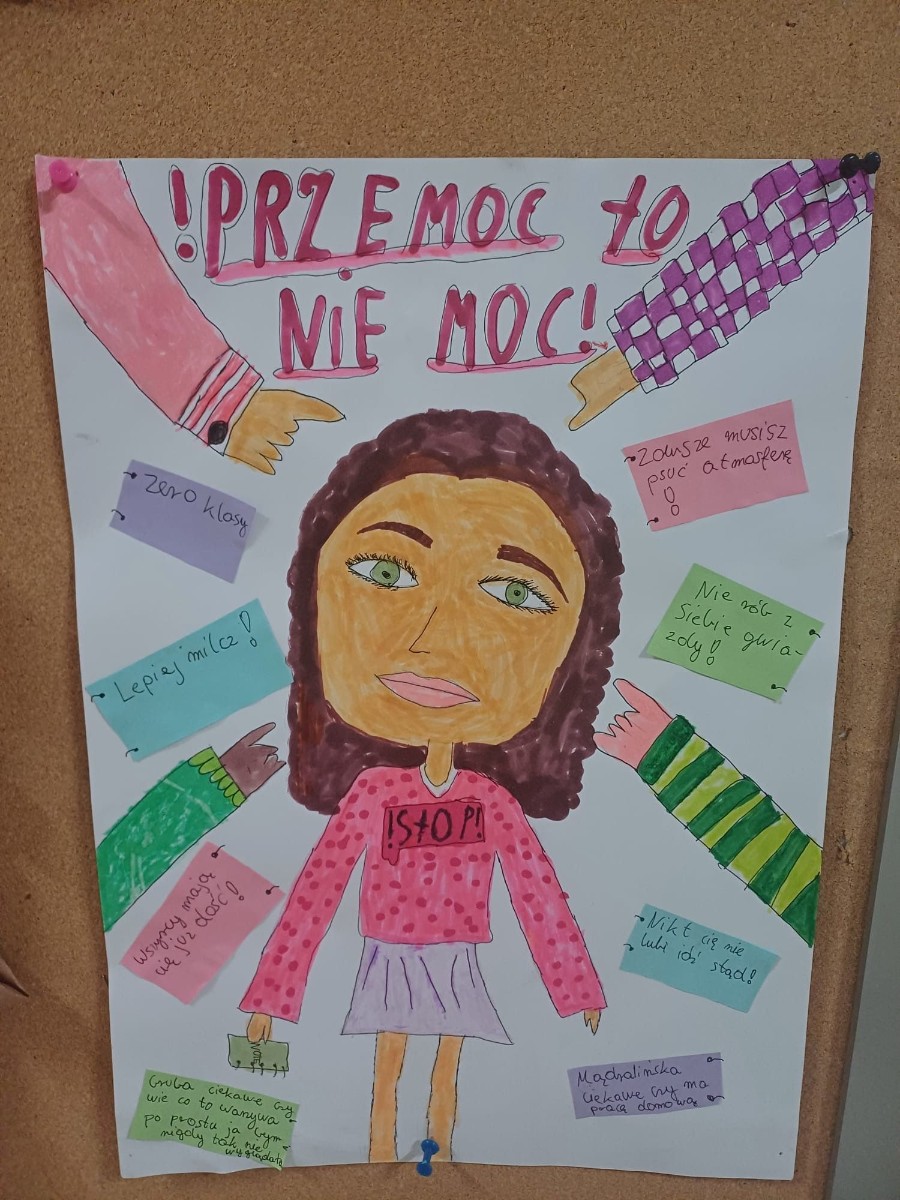 !PRZEMOC TO
NIE MOC!
Zero klasy
Zawsze musisz
psuć atmosferę
!
Lepiej milcz!
Nie rób z
siebie gwia-
zdy!
!STOP!
Wszyscy mają
cię już dość!
Nikt cię nie
lubi idź stąd!
NOTE
Gruba ciekawe czy
wie co to warzywa
po prostu ja bym
nigdy tak nie
wyglądała
Mądralińska
ciekawe czy ma
pracę domową